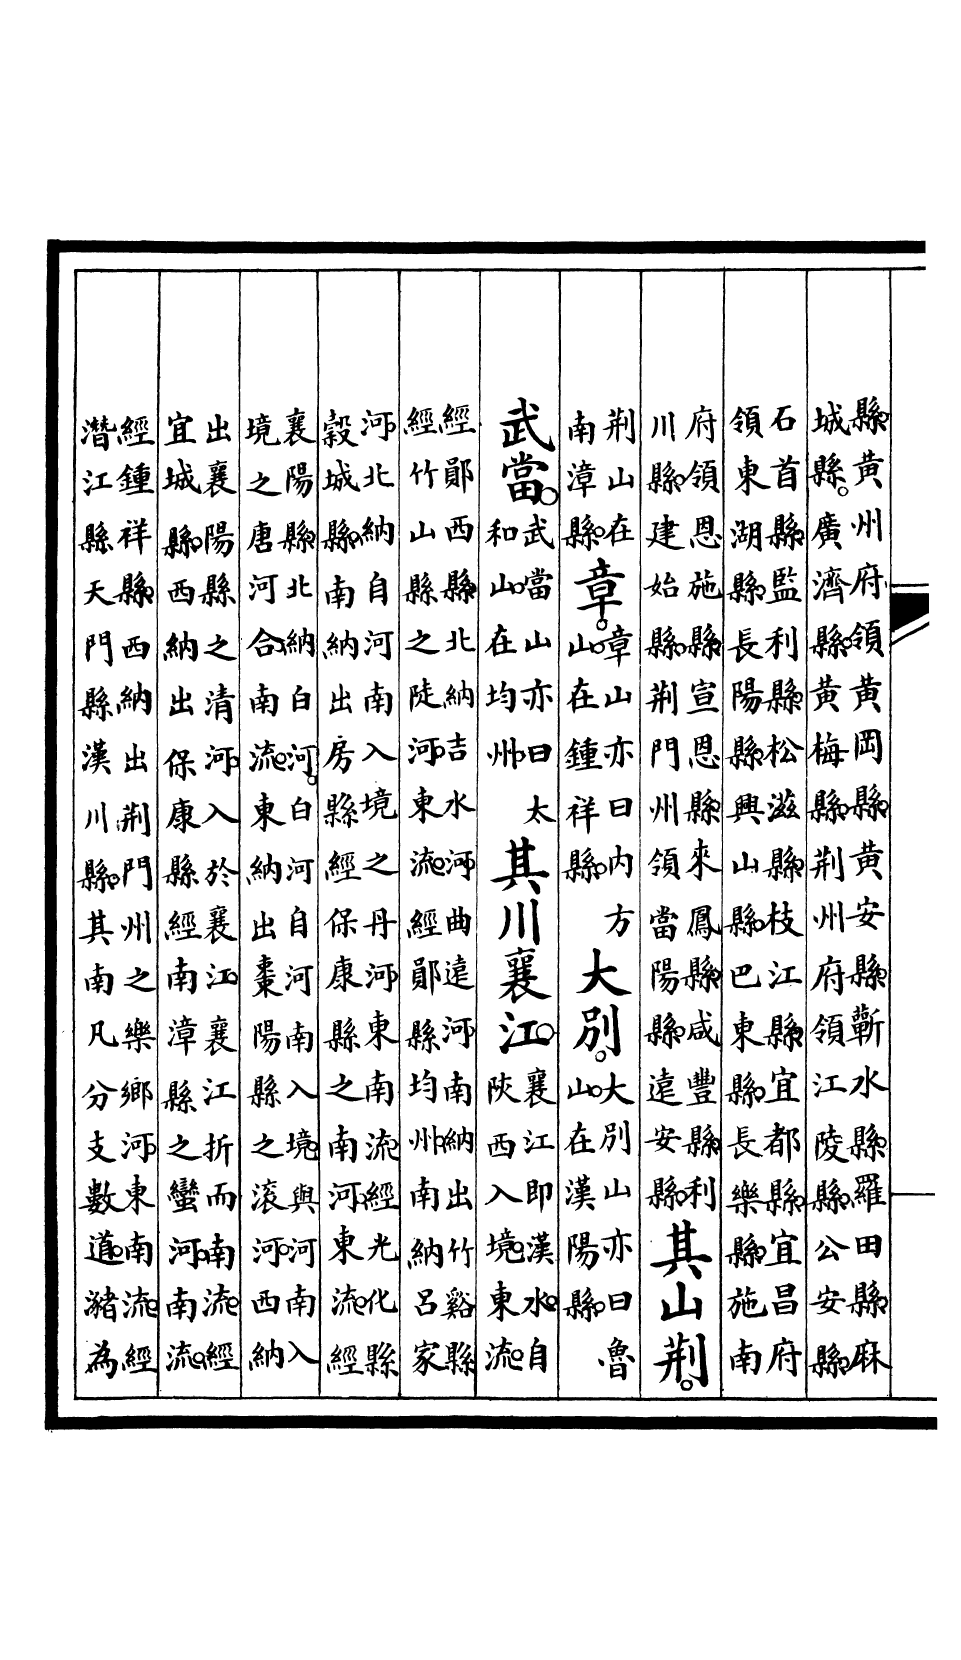 縣。黄州府領黄岡縣。黄安縣。蘄水縣。羅田縣。麻
城縣。廣濟縣。黄梅縣。荆州府領江陵縣。公安縣。
石首縣。監利縣。松滋縣。枝江縣。宜都縣。宜昌府
領東湖縣。長陽縣。興山縣。巴東縣。長樂縣。施南
府領恩施縣。宣恩縣。來鳳縣。咸豐縣。利
川縣。建始縣。荆門州領當陽縣。遠安縣。
其山荆。
荆山在
南漳縣。
章。
章山亦曰内方
山。在鍾祥縣。
大別。
大別山亦曰魯
山。在漢陽縣。
武當。
武當山亦曰太
和山。在均州。
其川襄江。
襄江即漢水。自
陝西入境。東流。
經鄖西縣。北納吉水河。曲遠河。南納出竹谿縣
經竹山縣之陡河。東流。經鄖縣。均州。南納呂家
河。北納自河南入境之丹河。東南流。經光化縣
穀城縣。南納出房縣經保康縣之南河。東流。經
襄陽縣。北納白河。白河自河南入境。與河南入
境之唐河合。南流。東納出棗陽縣之滚河。西納
出襄陽縣之清河。入於襄江。襄江折而南流。經
宜城縣。西納出保康縣經南漳縣之蠻河。南流。
經鍾祥縣。西納出荆門州之樂鄉河。東南流。經
潛江縣天門縣漢川縣。其南凡分支數道。瀦為